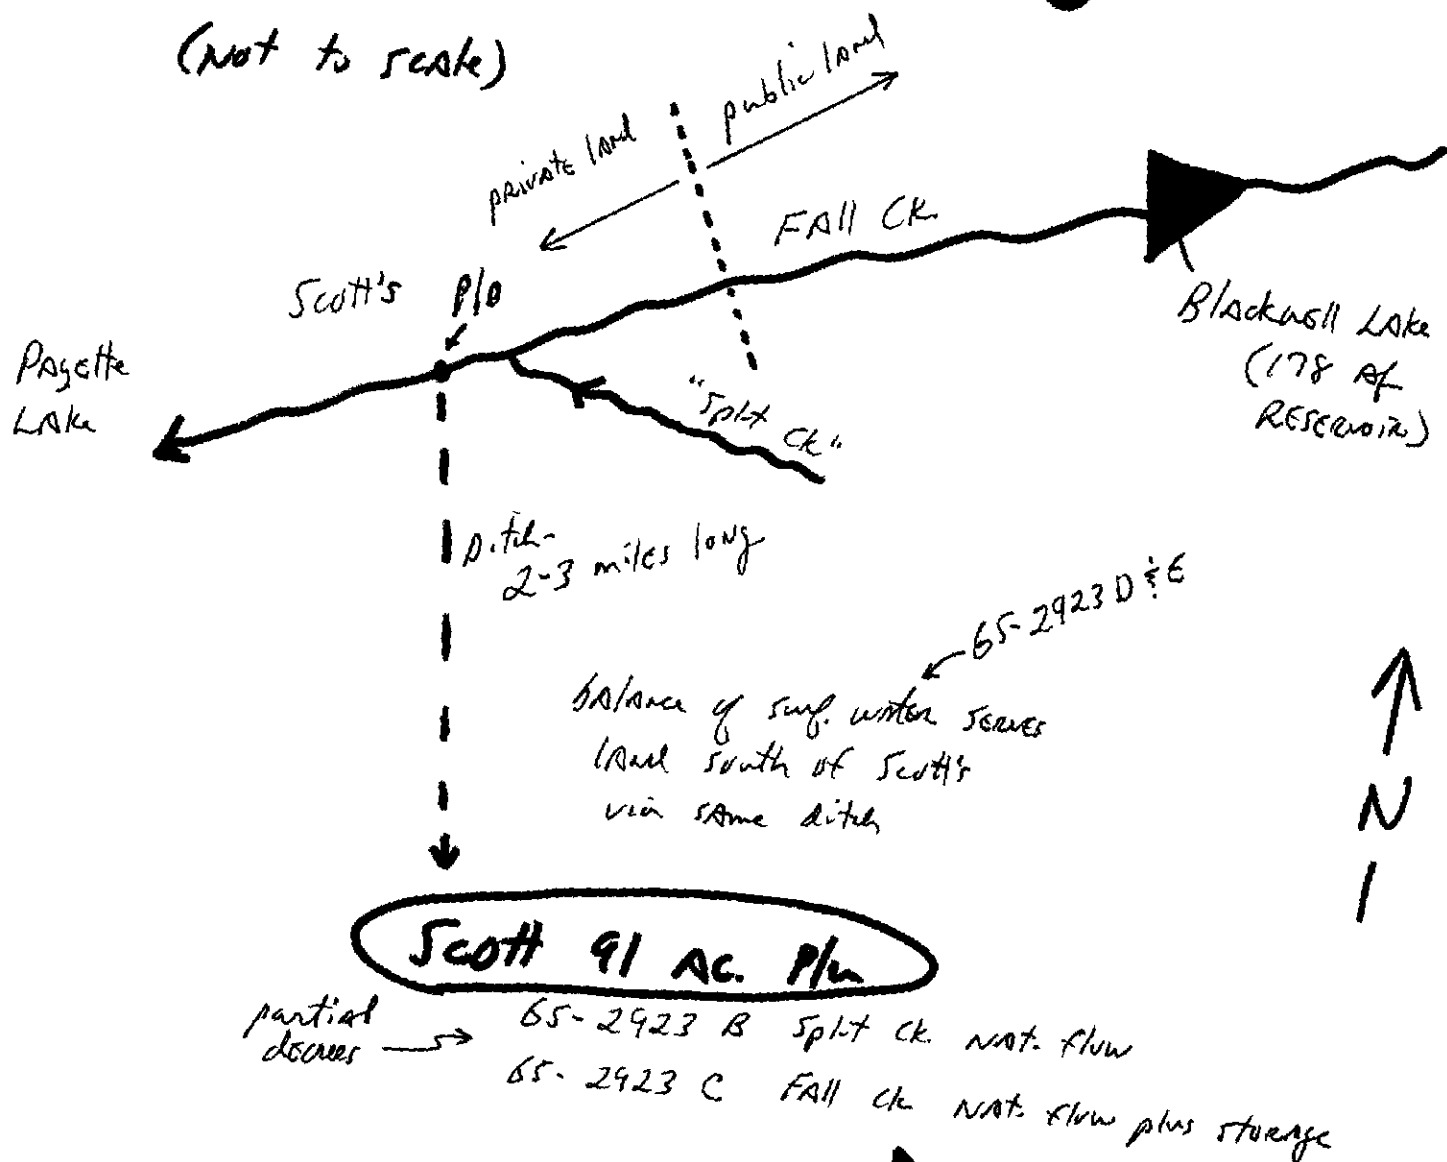 (Not to scale)
private land
public land
Fall Ck.
Scott's P/D
Payette
Lake
Blackwell Lake
(178 Af
Reservoir)
"Split
Ck"
Ditch-
2-3 miles long
65-2923 D & E
balance of surf. water serves
land south of Scott's
via same ditch
N
Scott 91 Ac. P/u
partial
decrees
65-2923 B Split Ck. Nat. flow
65-2923 C Fall Ck Nat. flow plus storage